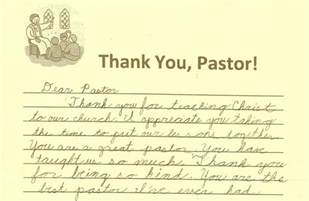 Thank You, Pastor!
Dear Pastor
Thank you for teaching Christ
to our church. I appreciate you taking
the time to put our lessons together
You are a great pastor. You have
taught us so much. Thank you
for being so kind. You are the
best pastor I've ever had.